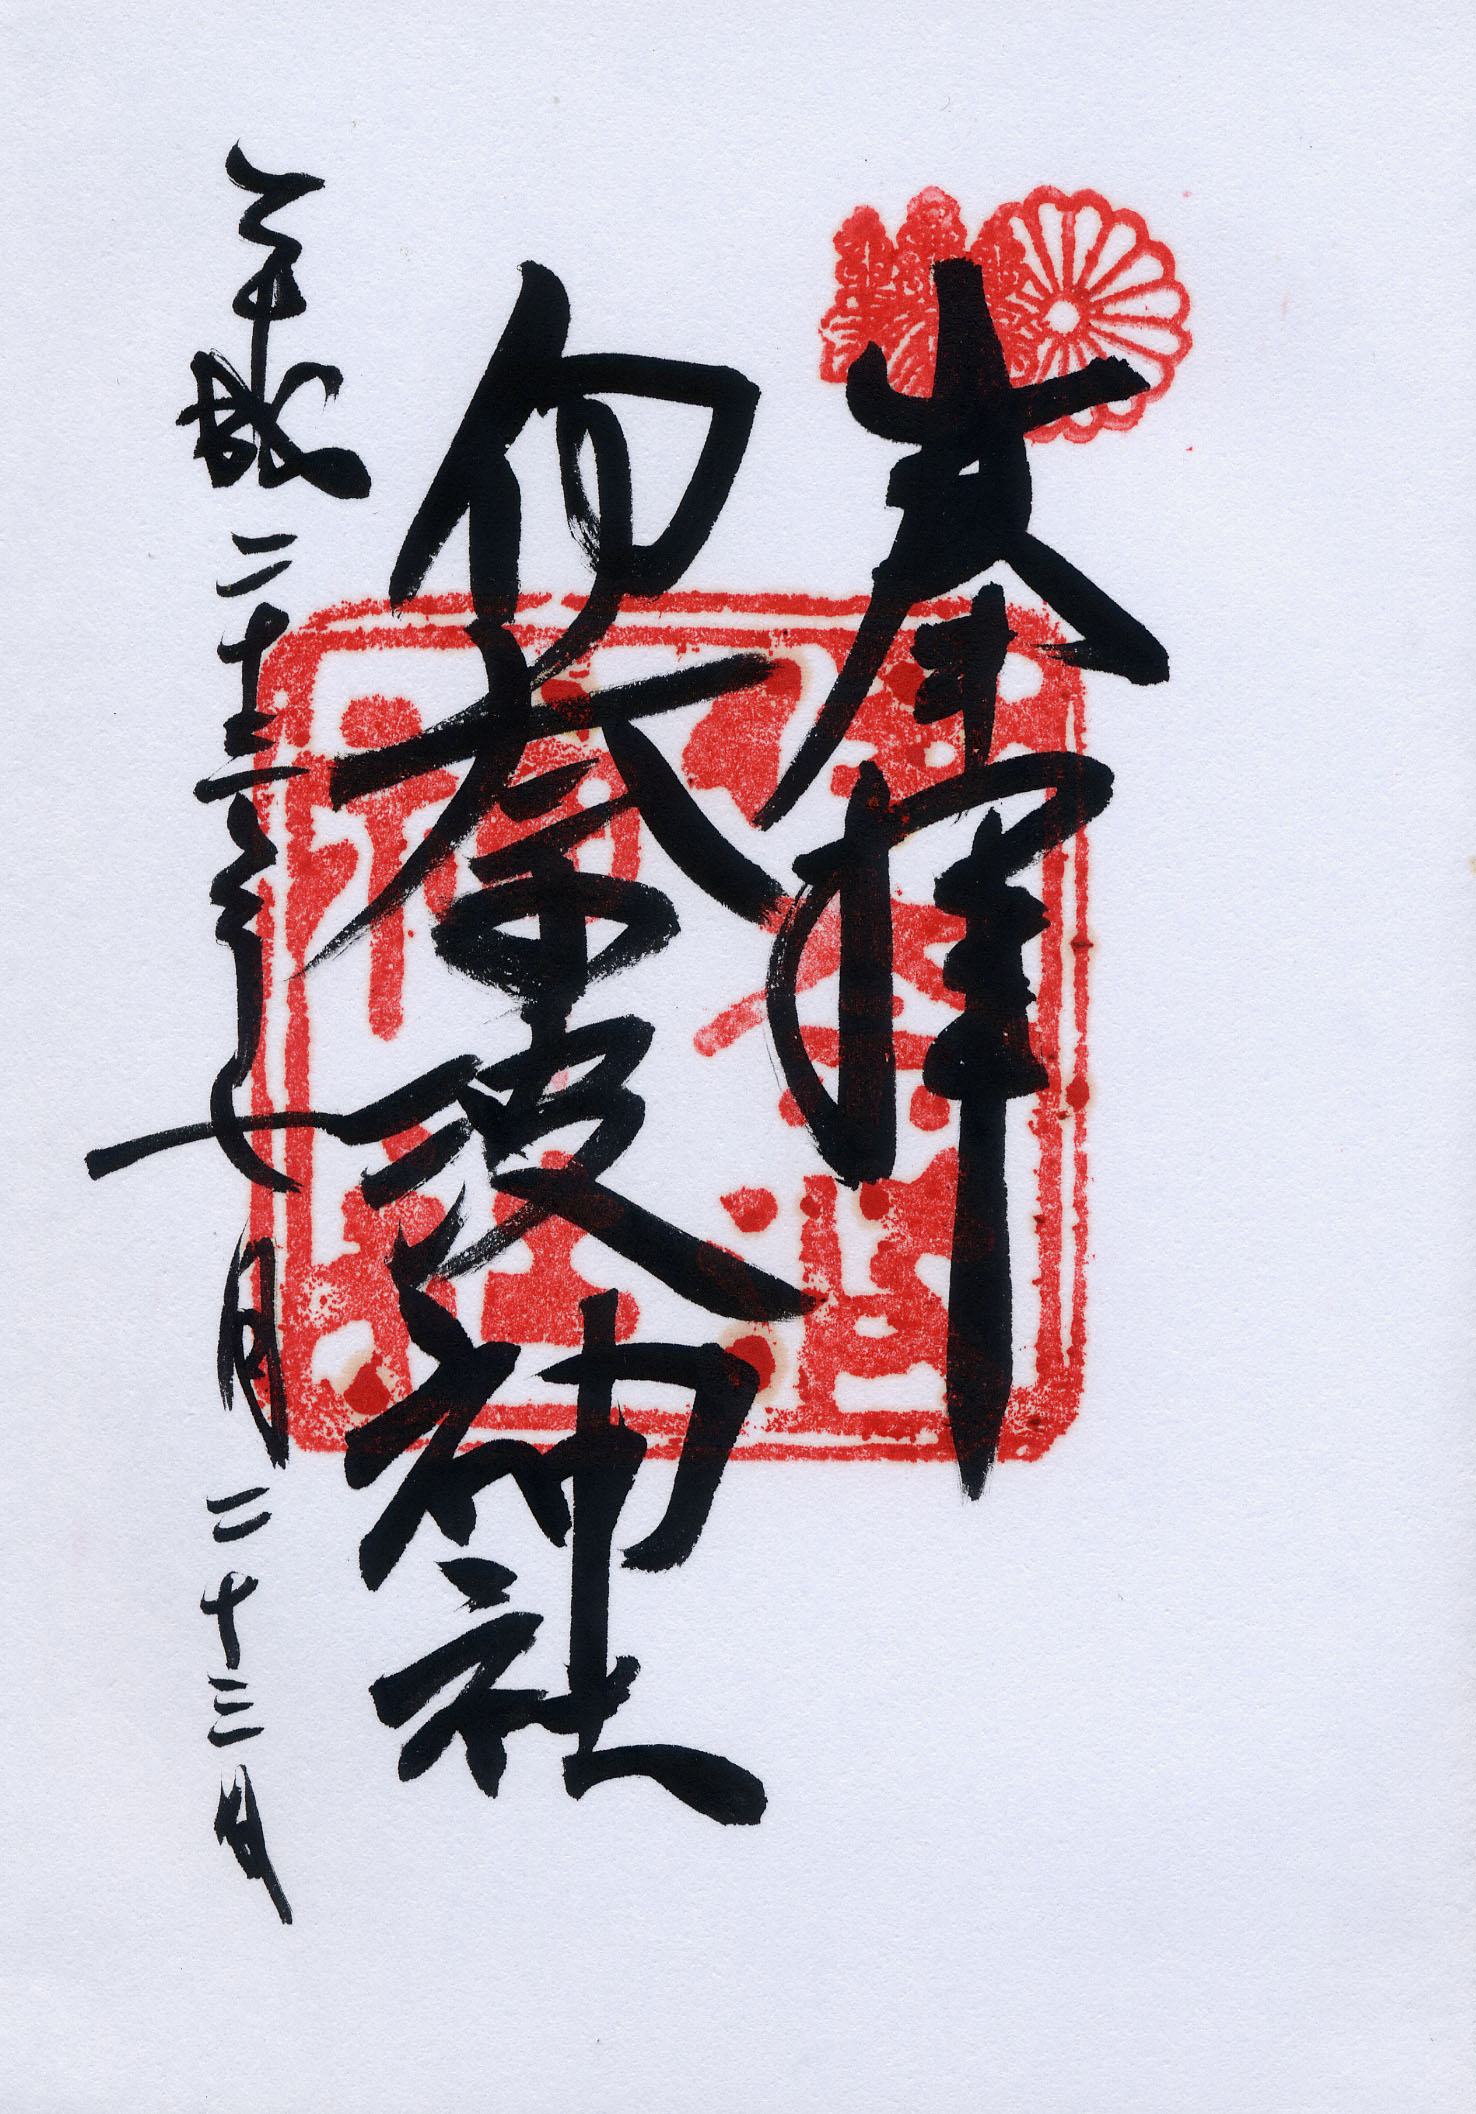 奉拝
伊奈波神社
平成二十三年七月二十三日